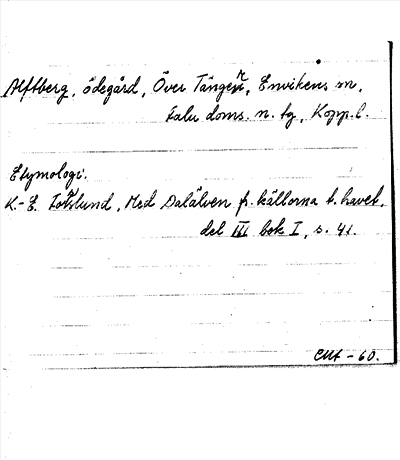 Alftberg, ödegård, Över Tänger, Envikens sn,
Falu doms. n. tg, Kopp. l.
Etymologi.
K.-E. Forsslund, Med Dalälven fr. källorna t. havet.
del III bok I, s. 41.
-60.